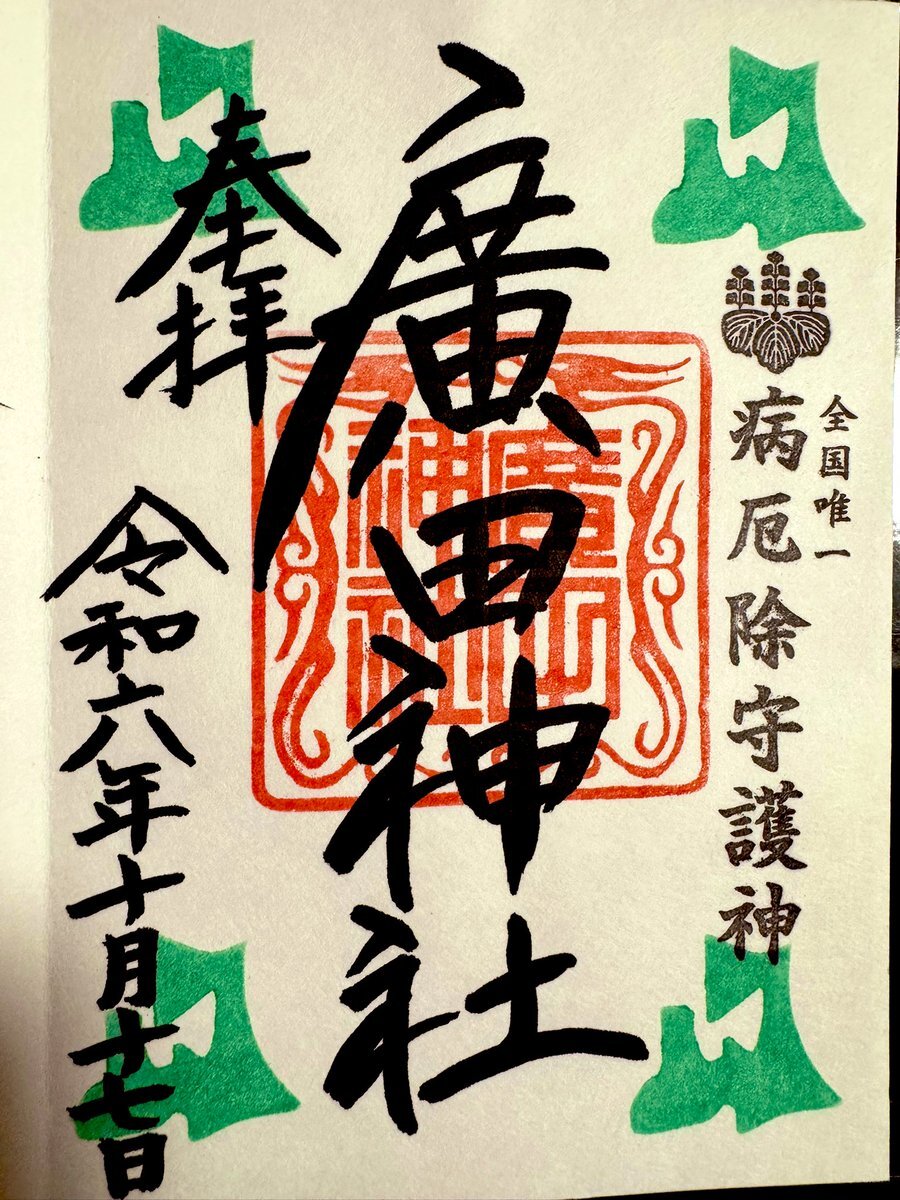 全国唯一
病厄除守護神
廣田神社
奉拝
令和六年十月十七日
廣田
神社